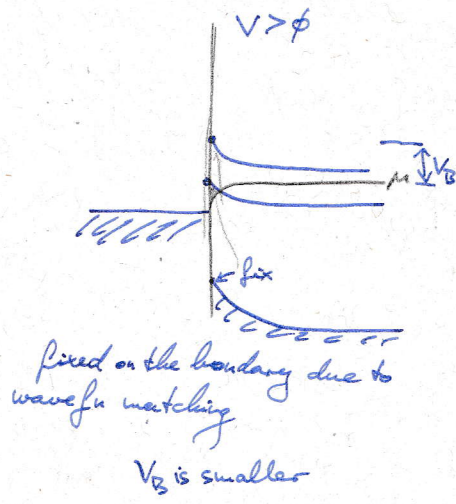 V > ϕ
V_B
μ
← fix
fixed on the boundary due to
wavefn matching
V_B is smaller